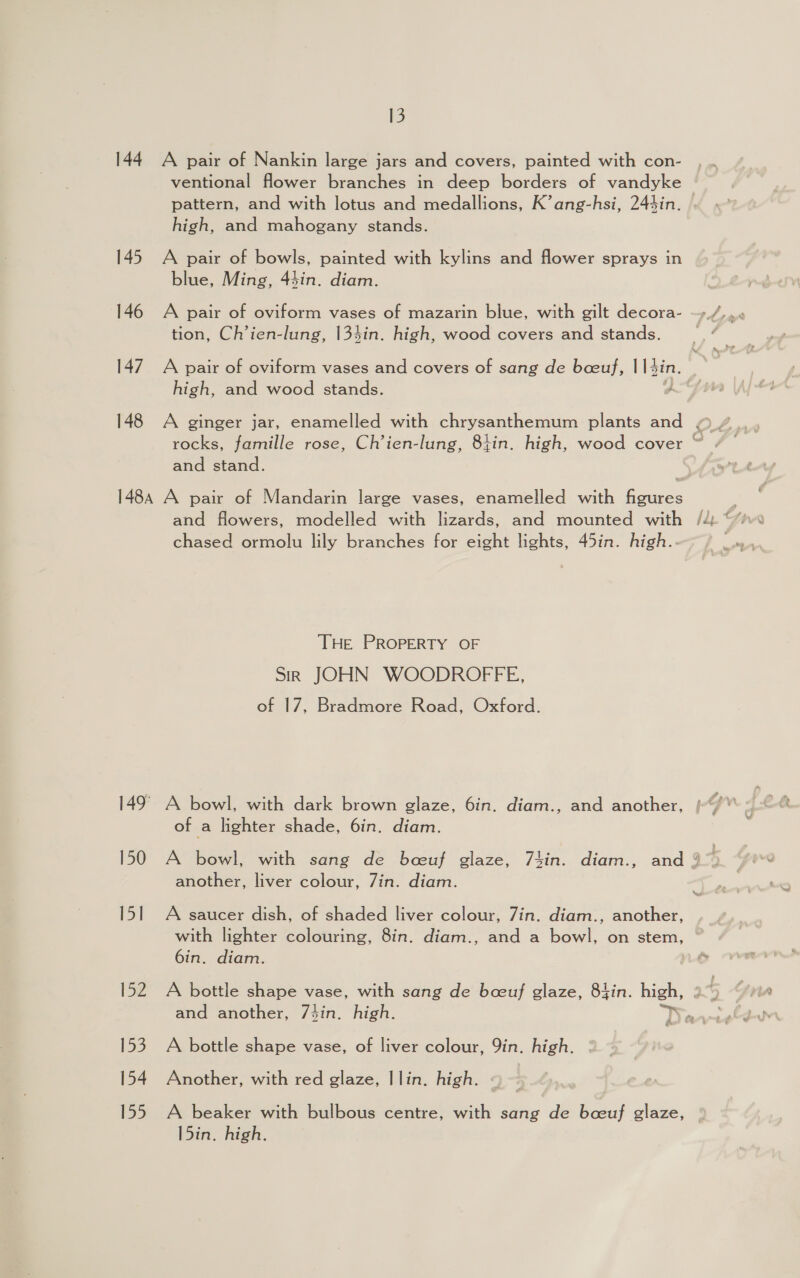 13
144 A pair of Nankin large jars and covers, painted with con-
ventional flower branches in deep borders of vandyke
pattern, and with lotus and medallions, K’ang-hsi, 24½in.
high, and mahogany stands.
145 A pair of bowls, painted with kylins and flower sprays in
blue, Ming, 4½in. diam.
146 A pair of oviform vases of mazarin blue, with gilt decora-
tion, Ch’ien-lung, 13½in. high, wood covers and stands.
147 A pair of oviform vases and covers of sang de bœuf, 11½in.
high, and wood stands.
148 A ginger jar, enamelled with chrysanthemum plants and
rocks, famille rose, Ch’ien-lung, 8¼in. high, wood cover
and stand.
148A A pair of Mandarin large vases, enamelled with figures
and flowers, modelled with lizards, and mounted with
chased ormolu lily branches for eight lights, 45in. high.
THE PROPERTY OF
SIR JOHN WOODROFFE,
of 17, Bradmore Road, Oxford.
149 A bowl, with dark brown glaze, 6in. diam., and another,
of a lighter shade, 6in. diam.
150 A bowl, with sang de bœuf glaze, 7½in. diam., and
another, liver colour, 7in. diam.
151 A saucer dish, of shaded liver colour, 7in. diam., another,
with lighter colouring, 8in. diam., and a bowl, on stem,
6in. diam.
152 A bottle shape vase, with sang de bœuf glaze, 8¼in. high,
and another, 7½in. high.
153 A bottle shape vase, of liver colour, 9in. high.
154 Another, with red glaze, 11in. high.
155 A beaker with bulbous centre, with sang de bœuf glaze,
15in. high.